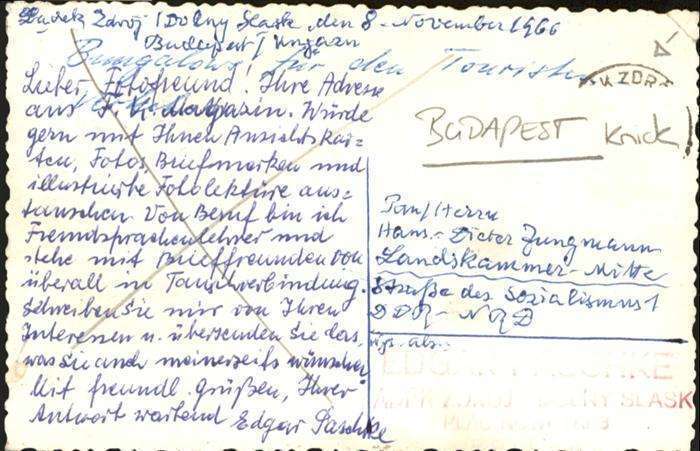 Lądek Zdrój / Dolny Śląsk, den 8. November 1966
Budapest / Ungarn
Bungalows für den Touristen
Lieber Fotofreund! Ihre Adresse
aus F. K. Magazin. Würde
gern mit Ihnen Ansichtskar=
ten, Fotos Briefmarken und
illustrierte Fotolektüre aus=
tauschen. Von Beruf bin ich
Fremdsprachenlehrer und
stehe mit Brieffreunden von
überall in Tauschverbindung.
Schreiben Sie mir von Ihren
Interessen u. übersenden Sie das,
was Sie auch meinerseits wünschen
Mit freundl. Grüßen, Ihrer
Antwort wartend Edgar Paschke
K ZDR
BUDAPEST Knick
Frau/Herrn
Hans-Dieter Jungmann
Landskammer-Mitte
Straße des Sozialismus 1
DDR - NRD
EDGAR PASCHKE
ZDRÓJ DOLNY ŚLĄSK